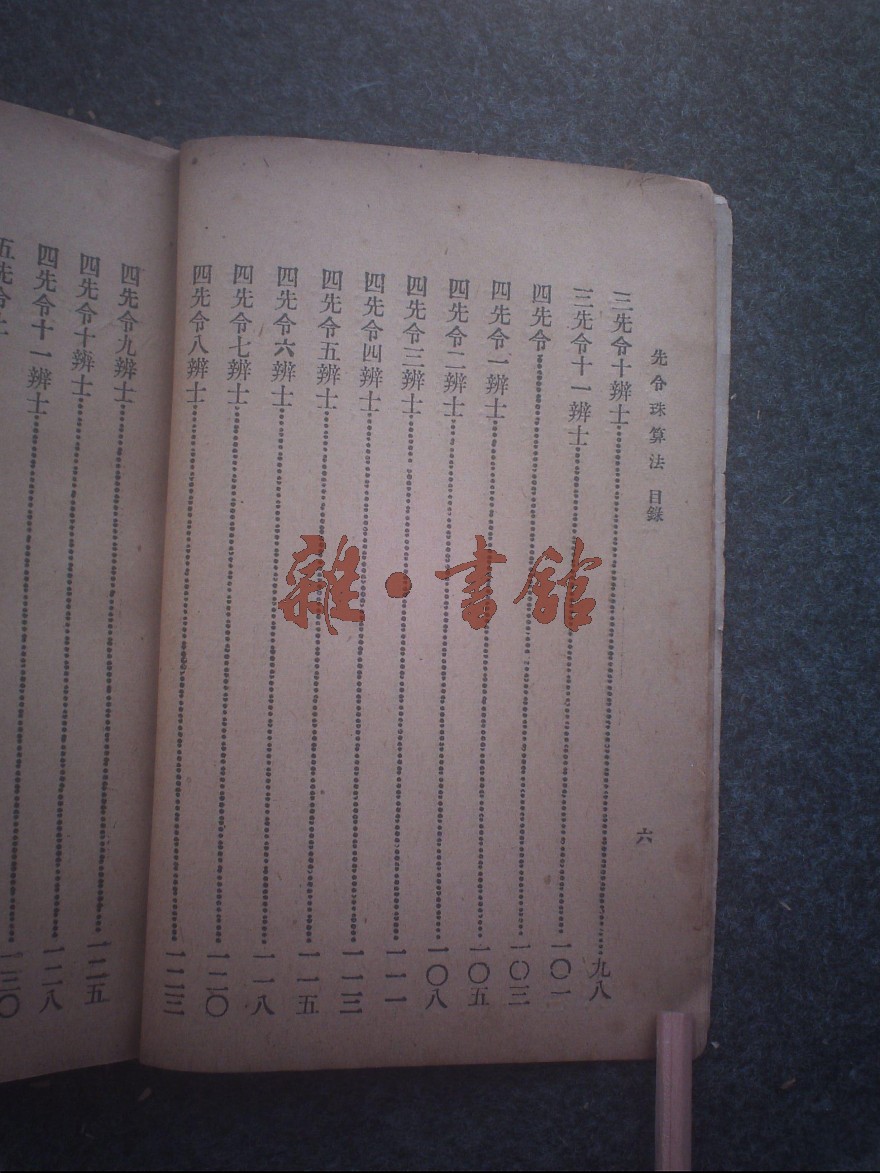 先令珠算法 目錄
六
三先令十辨士……九八
三先令十一辨士……一〇一
四先令……一〇三
四先令一辨士……一〇五
四先令二辨士……一〇八
四先令三辨士……一一一
四先令四辨士……一一三
四先令五辨士……一一五
四先令六辨士……一一八
四先令七辨士……一二〇
四先令八辨士……一二三
四先令九辨士……一二五
四先令十辨士……一二八
四先令十一辨士……一三〇
五先令
雜·書館